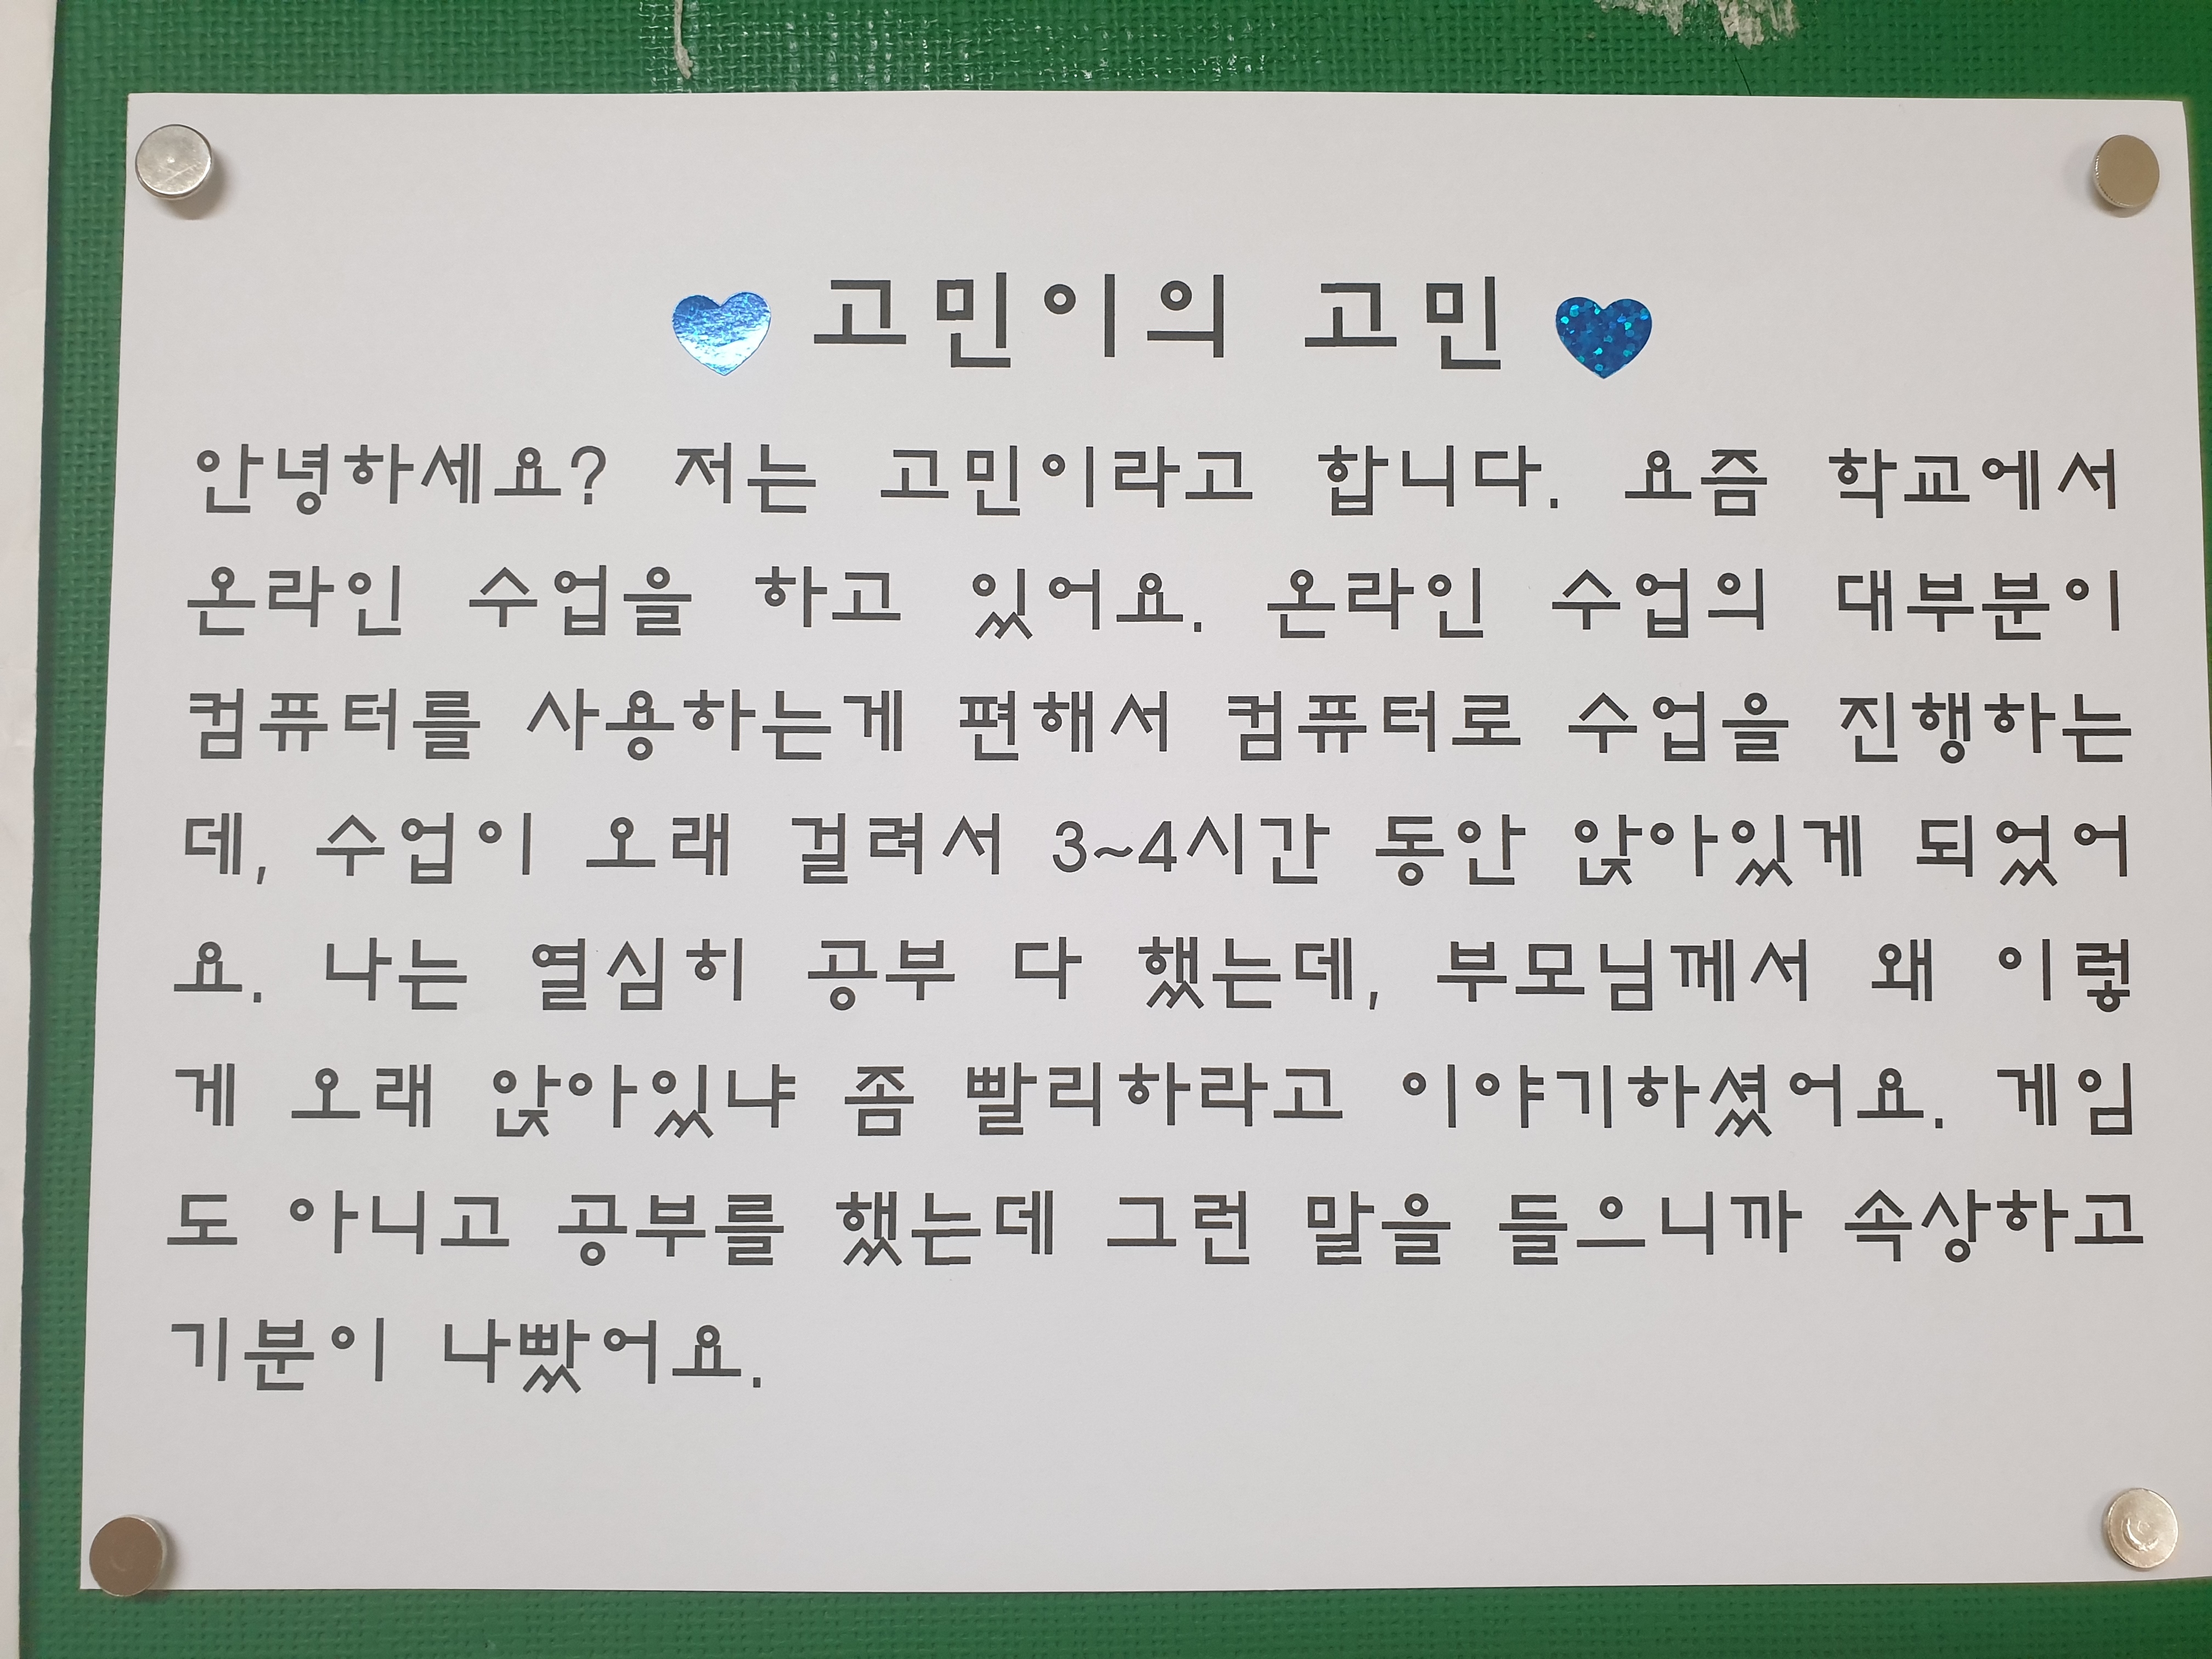 고민이의 고민
안녕하세요? 저는 고민이라고 합니다. 요즘 학교에서
온라인 수업을 하고 있어요. 온라인 수업의 대부분이
컴퓨터를 사용하는게 편해서 컴퓨터로 수업을 진행하는
데, 수업이 오래 걸려서 3~4시간 동안 앉아있게 되었어
요. 나는 열심히 공부 다 했는데, 부모님께서 왜 이렇
게 오래 앉아있냐 좀 빨리하라고 이야기하셨어요. 게임
도 아니고 공부를 했는데 그런 말을 들으니까 속상하고
기분이 나빴어요.